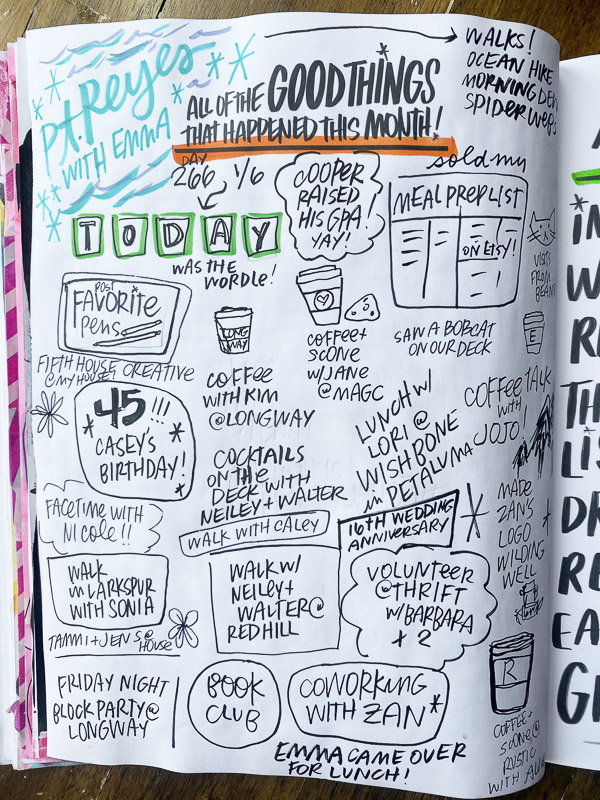 Pt. Reyes
WITH EMMA
ALL OF THE GOOD THINGS
THAT HAPPENED THIS MONTH!
WALKS!
OCEAN HIKE
MORNING DEW
SPIDER WEBS
DAY
266 1/6
TODAY
WAS THE
WORDLE!
COOPER
RAISED
HIS GPA!
YAY!
sold my
MEAL PREP LIST
ON ETSY!
VISITS
FROM
BEANS
POST
FAVORITE
Pens
FIFTH HOUSE CREATIVE
LONG
WAY
COFFEE
WITH KIM
@LONGWAY
COFFEE +
SCONE
W/JANE
@MAGC
SAW A BOBCAT
ON OUR DECK
E
COFFEE TALK
WITH
JOJO!
45!!!
CASEY'S
BIRTHDAY!
COCKTAILS
ON THE
DECK WITH
NEILEY + WALTER
LUNCH W/
LORI @
WISHBONE
in PETALUMA
MADE
ZAN'S
LOGO
WILDING
WELL
FACETIME WITH
NICOLE!!
WALK WITH CALEY
16TH WEDDING
ANNIVERSARY
WALK
in LARKSPUR
WITH SONIA
WALK W/
NEILEY +
WALTER @
RED HILL
VOLUNTEER
@THRIFT
W/BARBARA
+ 2
TAMMI + JEN'S @
HOUSE
R
COFFEE +
SCONE @
RUSTIC
WITH
FRIDAY NIGHT
BLOCK PARTY @
LONGWAY
BOOK
CLUB
COWORKING
WITH ZAN*
EMMA CAME OVER
FOR LUNCH!